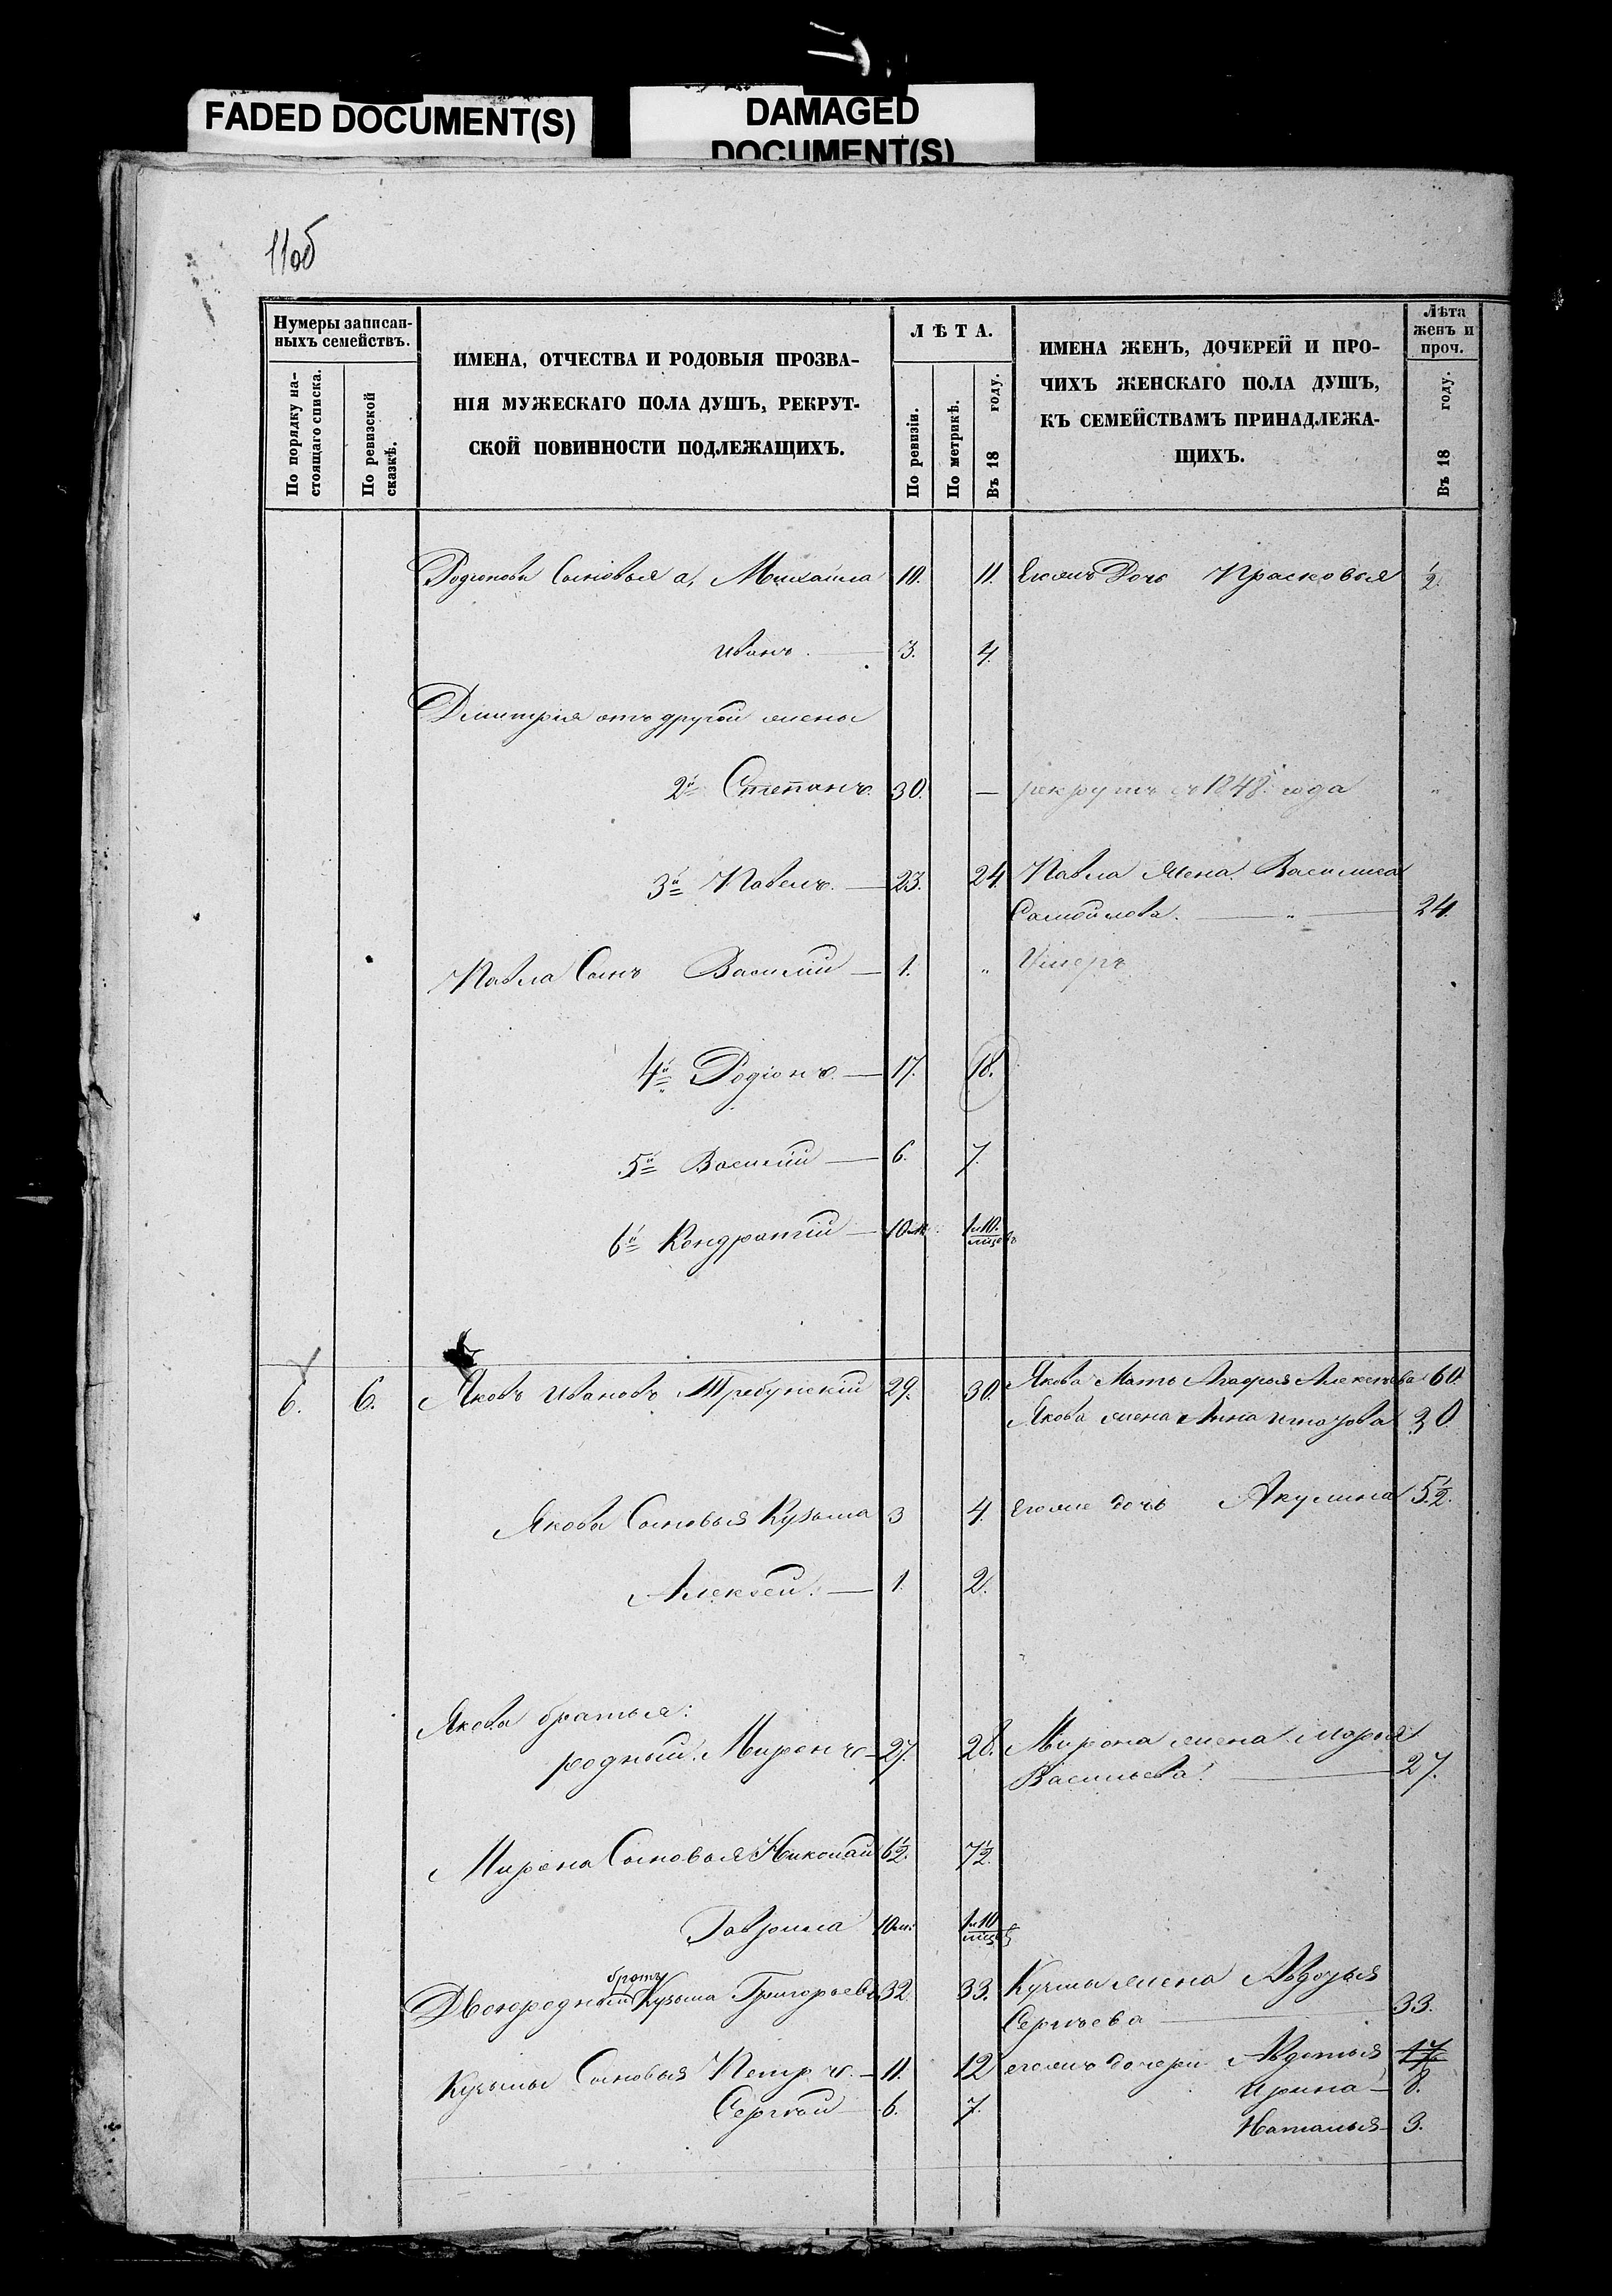 FADED DOCUMENT(S)
DAMAGED
DOCUMENT(S)
11об
Нумеры записан-
ныхъ семействъ.
По порядку на-
стоящаго списка.
По ревизской
сказкѣ.
ИМЕНА, ОТЧЕСТВА И РОДОВЫЯ ПРОЗВА-
НІЯ МУЖЕСКАГО ПОЛА ДУШЪ, РЕКРУТ-
СКОЙ ПОВИННОСТИ ПОДЛЕЖАЩИХЪ.
ЛѢТА.
По ревизіи.
По метрикѣ.
Въ 18 году.
ИМЕНА ЖЕНЪ, ДОЧЕРЕЙ И ПРО-
ЧИХЪ ЖЕНСКАГО ПОЛА ДУШЪ,
КЪ СЕМЕЙСТВАМЪ ПРИНАДЛЕЖА-
ЩИХЪ.
Лѣта
женъ и
проч.
Въ 18 году.
Родіонова Сыновья а, Михайла 10. 11. Егожъ Дочь Прасковья ½.
Иванъ. — 3. 4.
Дмитрія отъ другой жены
2й Степанъ. 30. — рекрутъ съ 1848. года "
3й Павелъ. — 23. 24. Павла жена Василиса
Самойлова. — " — 24.
Павла Сынъ Василій — 1. " Умеръ
4й Родіонъ. — 17. 18.
5й Василій — 6. 7.
6й Кондратій — 10 м. 1 и 10. мцовъ
6. 6. Яковъ Ивановъ Требунскій 29. 30. Якова Мать Агафья Алексѣева 60.
Якова жена Анна Игнатова 30.
Якова Сыновья Кузьма 3 4. Егоже дочь Акулина 5½.
Алексѣй. — 1. 2.
Якова братья:
родный. Миронъ — 27. 28. Мирона жена Марья
Васильева. — 27.
Мирона Сыновья Николай 6½. 7½.
Гаврила 10 м. 1 и 10 мцовъ
братъ
Двоюродный Кузьма Григорьевъ 32. 33. Кузьмы жена Авдотья
Сергѣева — 33.
Кузьмы Сыновья Петръ. — 11. 12 егожъ дочери Авдотья 17
Ирина — 8.
Сергѣй — 6. 7.
Наталья — 3.